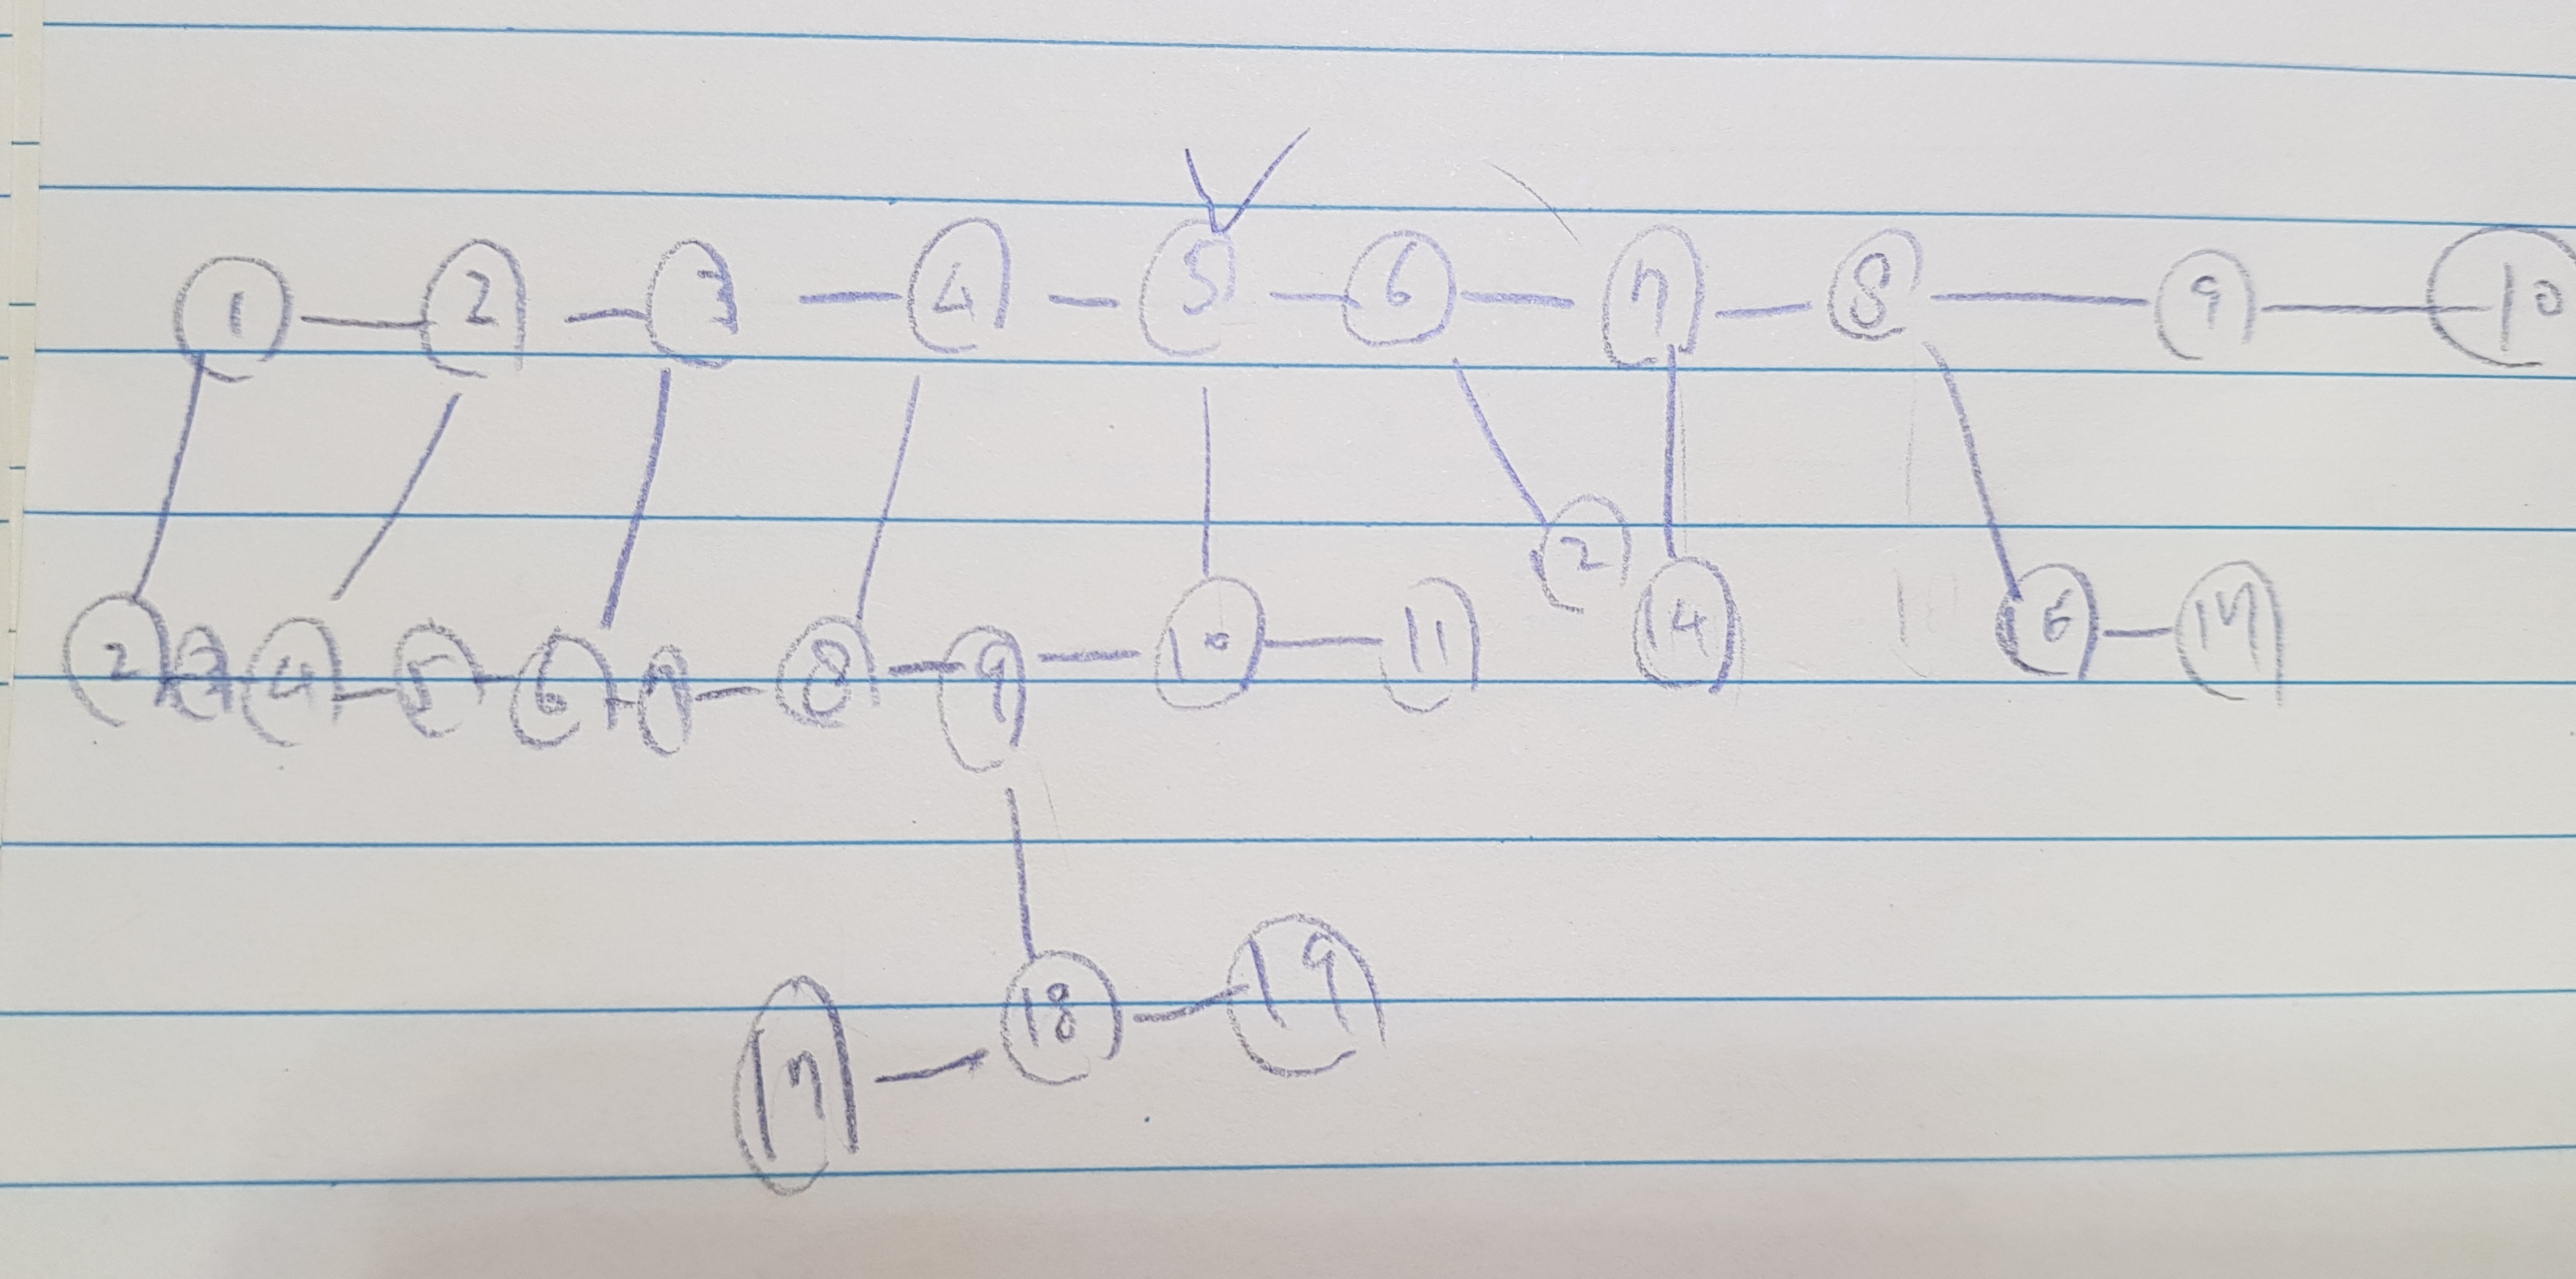 1 2 3 4 5 6 7 8 9 10
2 3 4 5 6 7 8 9 10 11 2 14 16 17
17 18 19